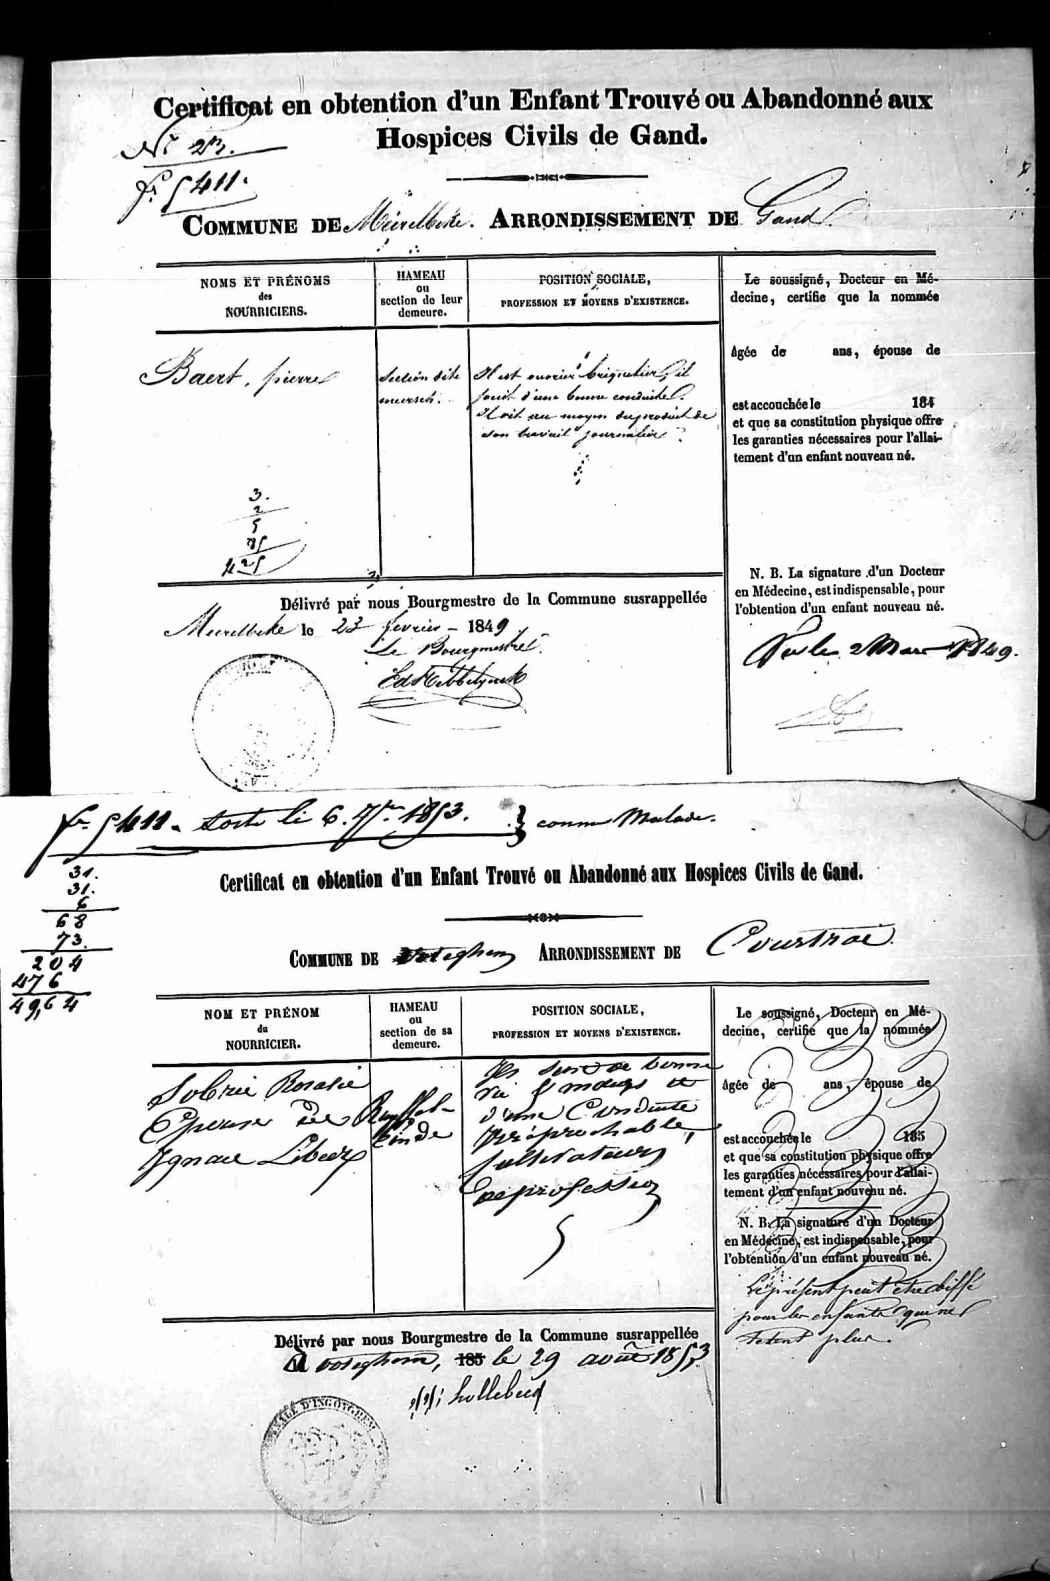 Certificat en obtention d'un Enfant Trouvé ou Abandonné aux
Hospices Civils de Gand.
No 23.
fo 5411.
COMMUNE DE Meirelbeke. ARRONDISSEMENT DE Gand.
NOMS ET PRÉNOMS
des
NOURRICIERS.
HAMEAU
ou
section de leur
demeure.
POSITION SOCIALE,
PROFESSION ET MOYENS D'EXISTENCE.
Baert, pierre
Section dite
meersch.
Il est ouvrier briquetier, il
jouit d'une bonne conduite.
Il vit au moyen du produit de
son travail journalier
3.
2
5
425
Le soussigné, Docteur en Mé-
decine, certifie que la nommée
Agée de ans, épouse de
est accouchée le 184
et que sa constitution physique offre
les garanties nécessaires pour l'allai-
tement d'un enfant nouveau né.
N. B. La signature d'un Docteur
en Médecine, est indispensable, pour
l'obtention d'un enfant nouveau né.
Délivré par nous Bourgmestre de la Commune susrappellée
Meirelbeke le 23 fevrier - 1849
Le Bourgmestre
Vu le 2 Mars 1849.
fo 5411. sorti le 6. 7bre 1853. } comme Malade.
31.
31.
6
68
73.
204
476
49,64
Certificat en obtention d'un Enfant Trouvé ou Abandonné aux Hospices Civils de Gand.
COMMUNE DE Ooteghem ARRONDISSEMENT DE Courtrai
NOM ET PRÉNOM
du
NOURRICIER.
HAMEAU
ou
section de sa
demeure.
POSITION SOCIALE,
PROFESSION ET MOYENS D'EXISTENCE.
Rosalie
Epouse de
Ignace
Ils sont de bonne
vie & moeurs et
d'une Conduite
irréprochable,
Cultivateurs
de profession
Le soussigné, Docteur en Mé-
decine, certifie que la nommée
Agée de ans, épouse de
est accouchée le 185
et que sa constitution physique offre
les garanties nécessaires pour l'allai-
tement d'un enfant nouveau né.
N. B. La signature d'un Docteur
en Médecine, est indispensable, pour
l'obtention d'un enfant nouveau né.
Le présent peut etre biffé
pour les enfants qui ne
tetent plus.
Délivré par nous Bourgmestre de la Commune susrappellée
A Ooteghem, 185 le 29 août 1853